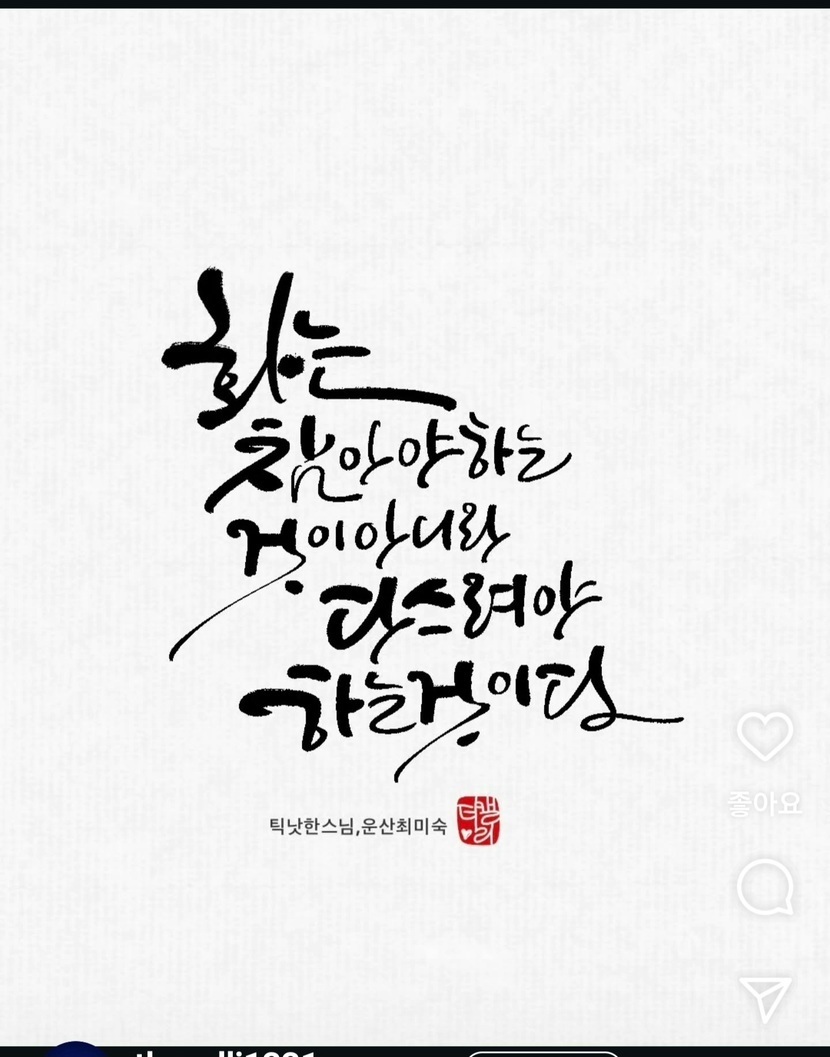 화는
참아야하는
것이아니라
다스려야
하는것이다
틱낫한스님,운산최미숙
좋아요